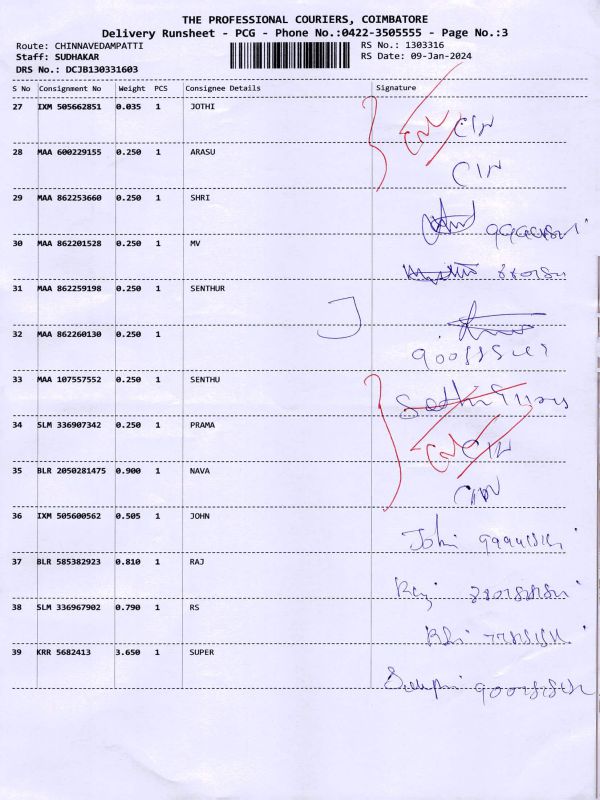 THE PROFESSIONAL COURIERS, COIMBATORE
Delivery Runsheet - PCG - Phone No.:0422-3505555 - Page No.:3
Route: CHINNAVEDAMPATTI RS No.: 1303316
Staff: SUDHAKAR RS Date: 09-Jan-2024
DRS No.: DCJB130331603
S No Consignment No Weight PCS Consignee Details Signature
27 IXM 505662851 0.035 1 JOTHI
28 MAA 600229155 0.250 1 ARASU
29 MAA 862253660 0.250 1 SHRI
30 MAA 862201528 0.250 1 MV
31 MAA 862259198 0.250 1 SENTHUR
32 MAA 862260130 0.250 1
33 MAA 107557552 0.250 1 SENTHU
34 SLM 336907342 0.250 1 PRAMA
35 BLR 2050281475 0.900 1 NAVA
36 IXM 505600562 0.505 1 JOHN
37 BLR 585382923 0.810 1 RAJ
38 SLM 336967902 0.790 1 RS
39 KRR 5682413 3.650 1 SUPER